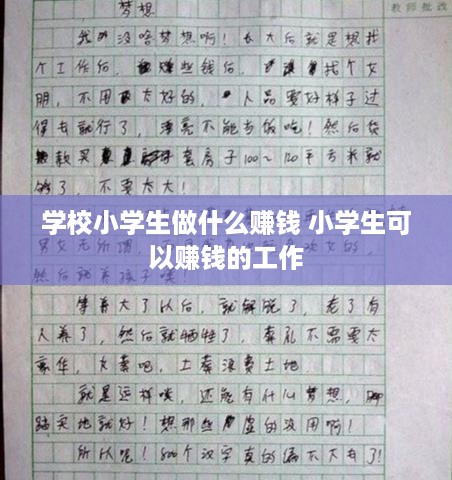 梦想
教师批改
我没啥梦想啊！长大后就是想找
个工作后，赚些钱后，找个女
朋，不用太好的，人品要好样子过
得去就行了，漂亮不能当饭吃！然后贷
款买套房子100~120平方米就
够了，不要太大！
学校小学生做什么赚钱 小学生可
以赚钱的工作
男女无所谓
等养大了以后，就解脱了，老了有
人养了，然后就牺牲了，葬礼不需要太
豪华，火葬吧，土葬浪费土地
就是这样噗，还能有什么梦想，脚
踏实地就好！想那些虚的没用啊！
所以呢！800个汉字真的编不大出了！